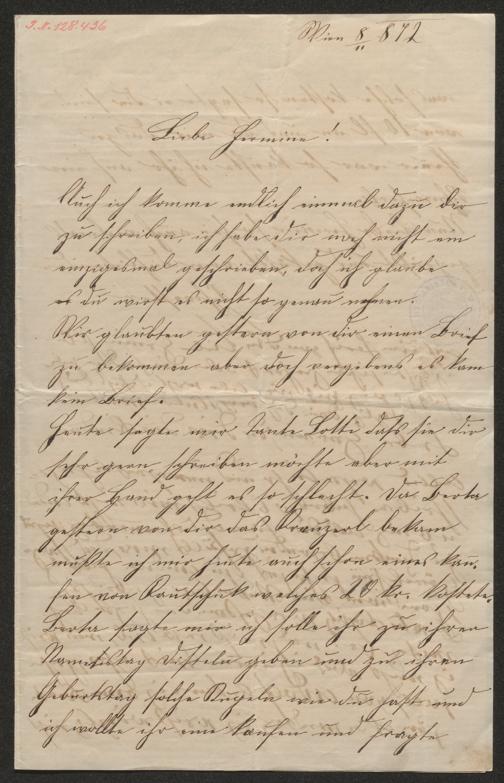 J.N. 128.436
Wien 8/11 872
Liebe Hermine!
Auch ich komme endlich einmal dazu dir
zu schreiben, ich habe dir noch nicht ein
einzigesmal geschrieben, doch ich glaube
es du wirst es nicht so genau nehmen.
Wir glaubten gestern von dir einen Brief
zu bekommen aber doch vergebens es kam
kein Brief.
Heute sagte mir Tante Lotte dass sie dir
sehr gern schreiben möchte aber mit
ihrer Hand geht es so schlecht. Da Berta
gestern von dir das Kreuzerl bekam
mußte ich mir heute auch schon eines kau-
fen von Kautschuk welches 20 kr. kostete.
Berta sagte mir ich solle ihr zu ihren
Namenstag Disteln geben und zu ihren
Geburtstag solche Kugeln wie du hast und
ich wollte ihr eine kaufen und fragte